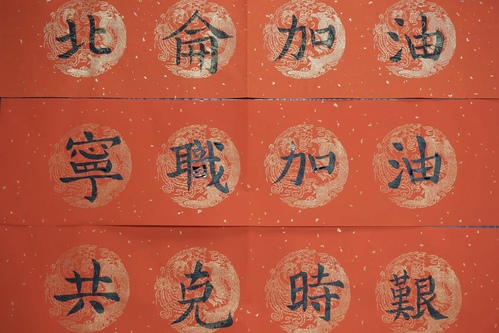 北侖加油
寧職加油
共克時艱